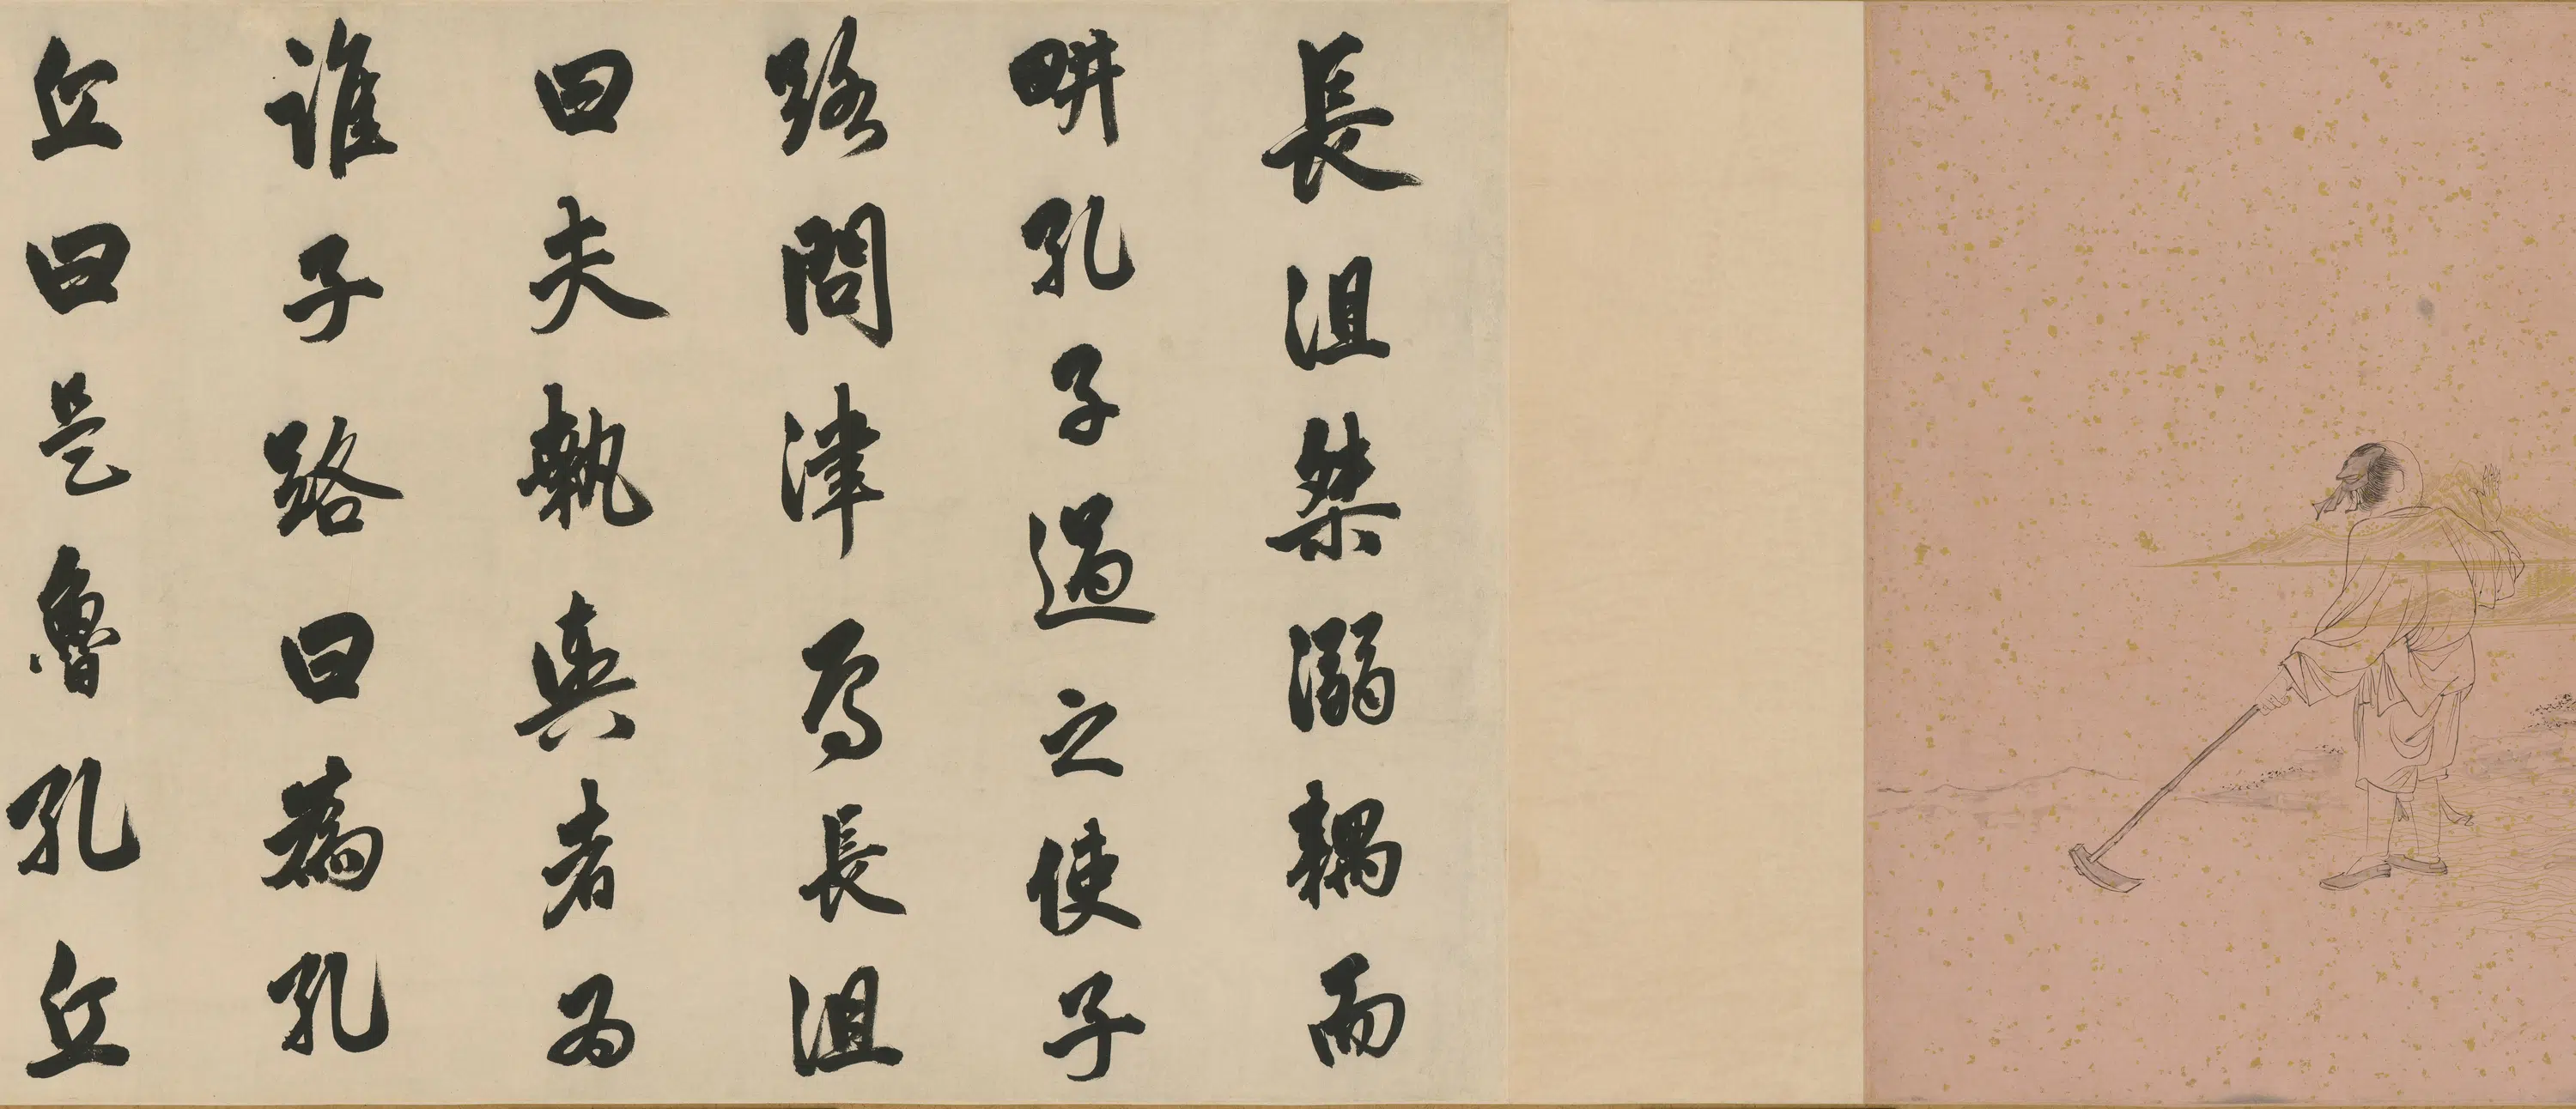 長沮桀溺耦而
畊孔子過之使子
路問津焉長沮
曰夫執輿者為
誰子路曰為孔
丘曰是魯孔丘